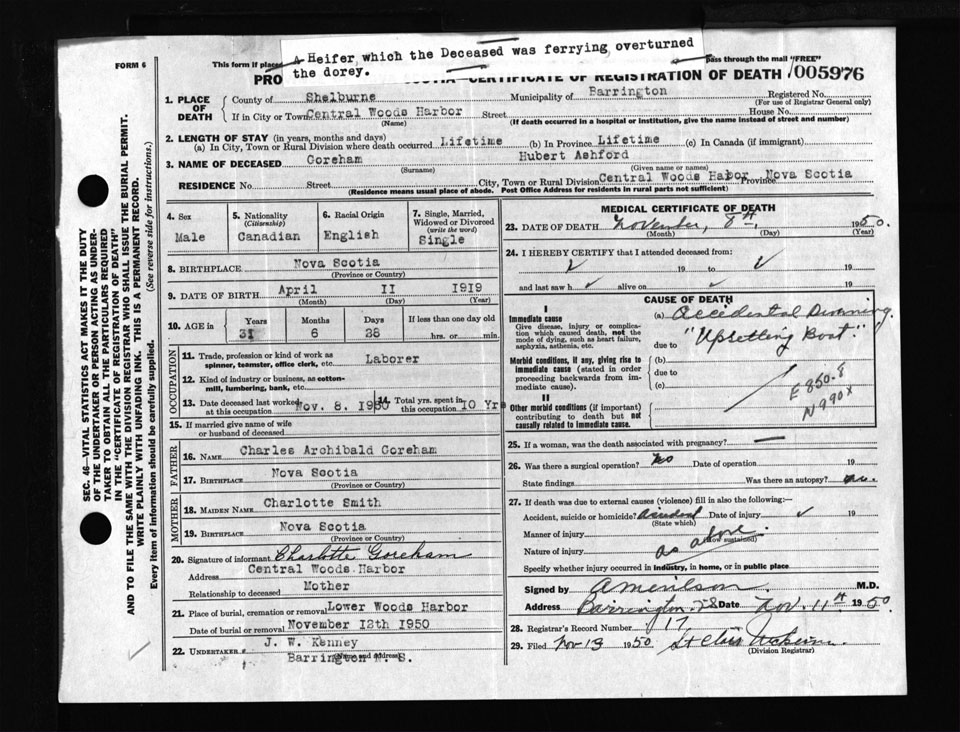 A Heifer which the Deceased was ferrying overturned
the dorey.
FORM 6
This form if placed
pass through the mail "FREE"
CERTIFICATE OF REGISTRATION OF DEATH
005976
SEC. 46—VITAL STATISTICS ACT MAKES IT THE DUTY
OF THE UNDERTAKER OR PERSON ACTING AS UNDER-
TAKER TO OBTAIN ALL THE PARTICULARS REQUIRED
IN THE "CERTIFICATE OF REGISTRATION OF DEATH"
AND TO FILE THE SAME WITH THE DIVISION REGISTRAR WHO SHALL ISSUE THE BURIAL PERMIT.
WRITE PLAINLY WITH UNFADING INK. THIS IS A PERMANENT RECORD.
Every item of information should be carefully supplied. (See reverse side for instructions.)
1. PLACE OF DEATH
County of Shelburne Municipality of Barrington Registered No.
(For use of Registrar General only)
If in City or Town Central Woods Harbor Street House No.
(Name) (If death occurred in a hospital or institution, give the name instead of street and number)
2. LENGTH OF STAY (in years, months and days)
(a) In City, Town or Rural Division where death occurred Lifetime (b) In Province Lifetime (c) In Canada (if immigrant)
3. NAME OF DECEASED Goreham Hubert Ashford
(Surname) (Given name or names)
RESIDENCE No. Street City, Town or Rural Division Central Woods Harbor Province Nova Scotia
(Residence means usual place of abode. Post Office Address for residents in rural parts not sufficient)
4. Sex Male
5. Nationality (Citizenship) Canadian
6. Racial Origin English
7. Single, Married, Widowed or Divorced (write the word) Single
8. BIRTHPLACE Nova Scotia
(Province or Country)
9. DATE OF BIRTH April 11 1919
(Month) (Day) (Year)
10. AGE in Years Months Days If less than one day old
31 6 28 hrs. or min.
OCCUPATION
11. Trade, profession or kind of work as
spinner, teamster, office clerk, etc. Laborer
12. Kind of industry or business, as cotton-
mill, lumbering, bank, etc.
13. Date deceased last worked
at this occupation Nov. 8. 1950
14. Total yrs. spent in
this occupation 10 Yrs
15. If married give name of wife
or husband of deceased
FATHER
16. NAME Charles Archibald Goreham
17. BIRTHPLACE Nova Scotia
(Province or Country)
MOTHER
18. MAIDEN NAME Charlotte Smith
19. BIRTHPLACE Nova Scotia
(Province or Country)
20. Signature of informant Charlotte Goreham
Address Central Woods Harbor
Relationship to deceased Mother
21. Place of burial, cremation or removal Lower Woods Harbor
Date of burial or removal November 12th 1950
22. UNDERTAKER J. W. Kenney
Barrington N. S.
(Name and address)
MEDICAL CERTIFICATE OF DEATH
23. DATE OF DEATH November, 8th, 1950
(Month) (Day) (Year)
24. I HEREBY CERTIFY that I attended deceased from:
19 to 19
and last saw h alive on 19
CAUSE OF DEATH
I
Immediate cause
Give disease, injury or complica-
tion which caused death, not the
mode of dying, such as heart failure,
asphyxia, asthenia, etc.
(a) Accidental Drowning.
due to "Upsetting Boat."
Morbid conditions, if any, giving rise to
immediate cause (stated in order
proceeding backwards from im-
mediate cause).
(b)
due to
(c)
E 850.8
N 990X
II
Other morbid conditions (if important)
contributing to death but not
causally related to immediate cause.
25. If a woman, was the death associated with pregnancy? —
26. Was there a surgical operation? No Date of operation 19
State findings Was there an autopsy? no.
27. If death was due to external causes (violence) fill in also the following:—
Accident, suicide or homicide? Accident Date of injury 19
(State which)
Manner of injury
(How sustained)
Nature of injury as above.
Specify whether injury occurred in industry, in home, or in public place
Signed by M.D.
Address Barrington Date Nov. 11th 1950.
28. Registrar's Record Number 17
29. Filed Nov 13 1950
(Division Registrar)